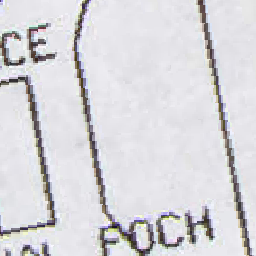 CE
FOCH